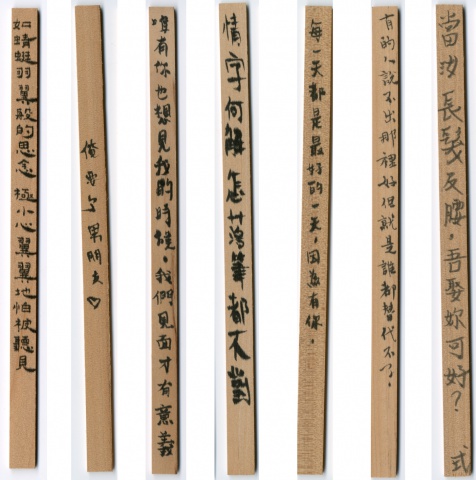 如蜻蜓羽翼般的思念 極小心翼翼地怕被聽見
俺要 男朋友♡
唯有你也想見我的時候，我們見面才有意義
情字何解 怎落筆都不對
每一天都是最好的一天，因為有你。
有的人說不出那裡好但就是誰都替代不了。
當汝長髮及腰，吾娶妳可好？ 式